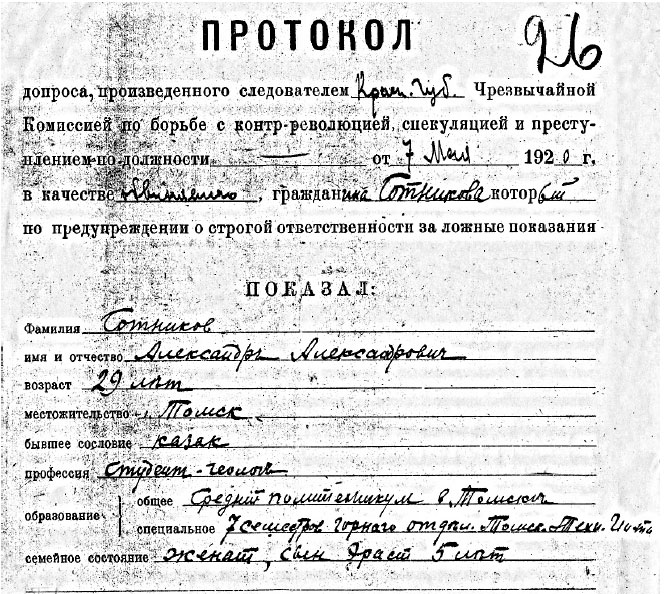 96
ПРОТОКОЛ
допроса, произведенного следователем Крас. Губ. Чрезвычайной
Комиссией по борьбе с контр-революцией, спекуляцией и престу-
плением по должности — от 7 Мая 1920 г.
в качестве обвиняемого, гражданина Сотникова который
по предупреждении о строгой ответственности за ложные показания
ПОКАЗАЛ:
Фамилия Сотников
имя и отчество Александръ Александрович
возраст 29 лѣт
местожительство г. Томск
бывшее сословие казак
профессия студент-геологъ
образование
общее Средний политехникум в Томске
специальное 7 семестров Горнаго отдѣл. Томск. Техн. Инст.
семейное состояние женат, сын Эраст 5 лѣт